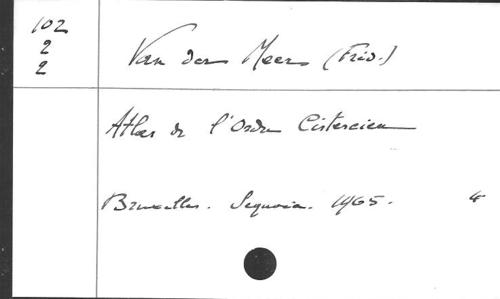 102
2
2
Van der Meer (Fréd.)
Atlas de l'Ordre Cistercien
Bruxelles. Sequoia. 1965. 4°